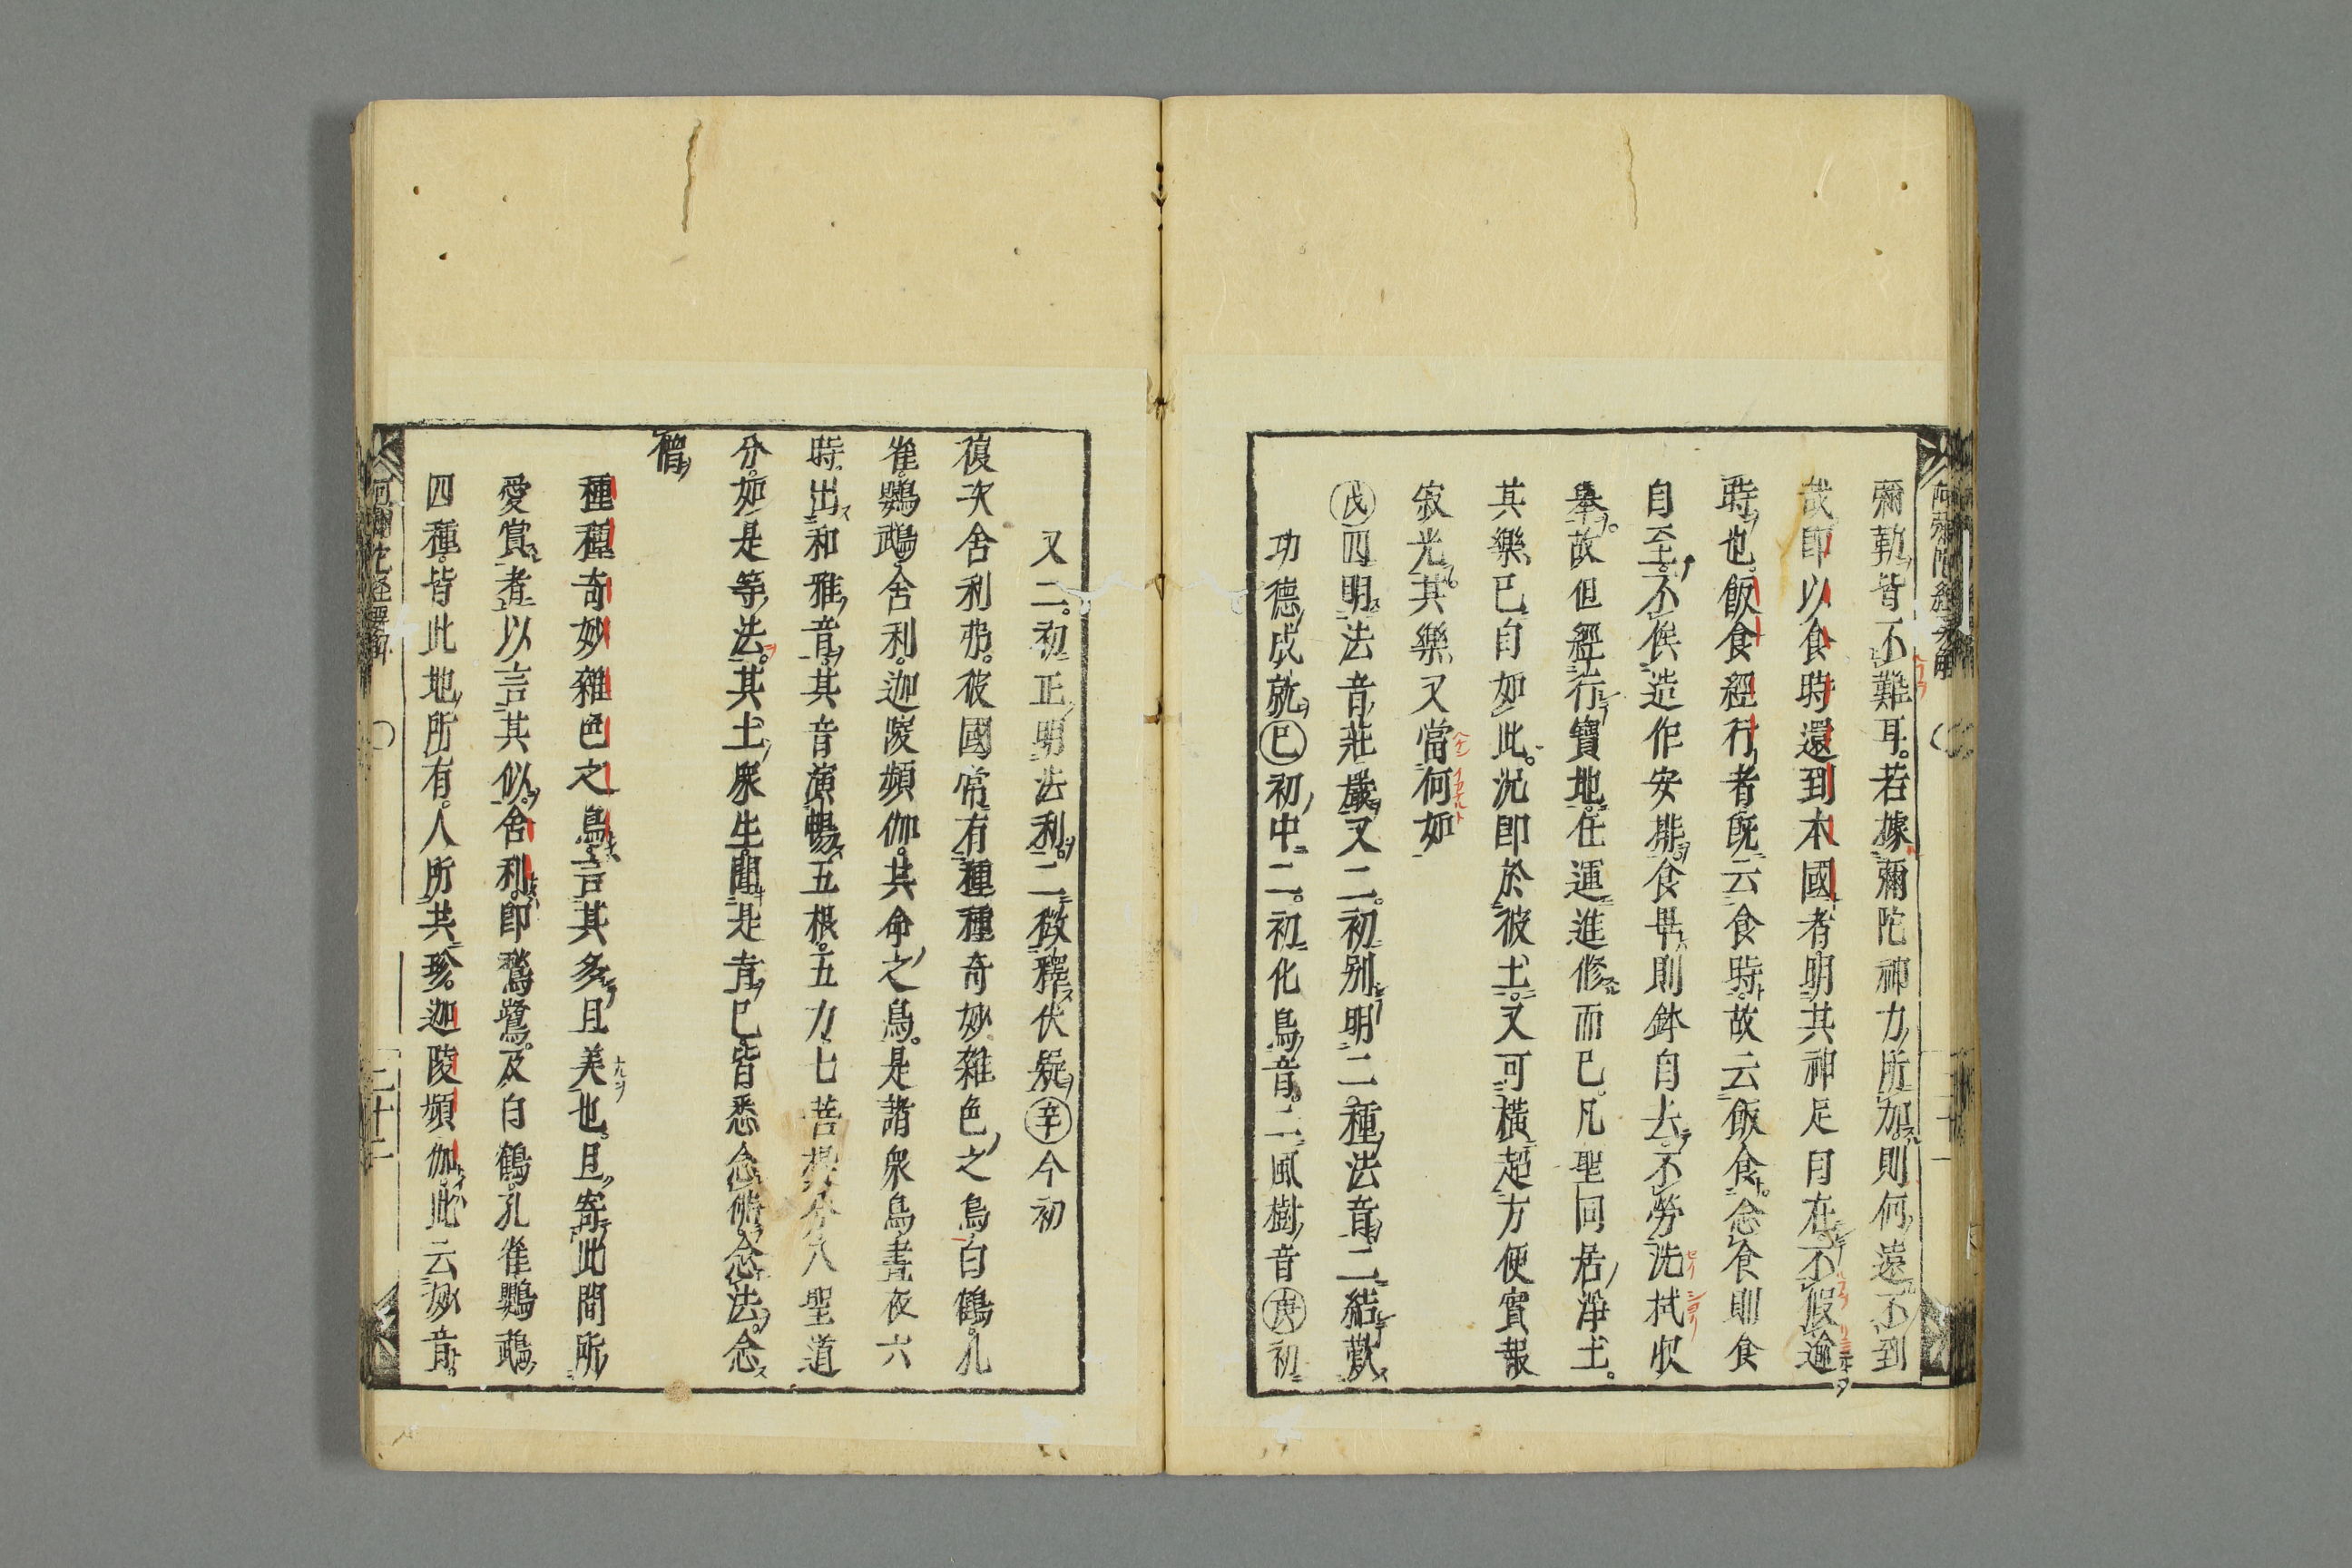 彌勒皆不難耳。若據彌陀神力所加。則何遠不到
哉。即以食時還到本國者。明其神足自在。不假逾
時也。飯食經行者。既云食時。故云飯食。念食則食
自至。不俟造作安排。食畢則鉢自去。不勞洗拭收
舉。故但經行寶地。任運進修而已。凡聖同居淨土。
其樂已自如此。況即於彼土。又可橫超方便實報
寂光。其樂又當何如
戊四明法音莊嚴又二。初別明二。種法音二結歎
功德成就己初中二。初化鳥音。二風樹音庚初
又二。初正明法利。二徵釋伏疑辛今初
復次舍利弗。彼國常有種種奇妙雜色之鳥。白鶴。孔
雀。鸚鵡。舍利。迦陵頻伽。共命之鳥。是諸衆鳥。晝夜六
時。出和雅音。其音演暢五根。五力七菩提分八聖道
分。如是等法。其土衆生聞是音已。皆悉念佛。念法。念
僧
種種奇妙雜色之鳥。言其多且美也。且寄此間所
愛賞者。以言其似。舍利。即鶖鷺。及白鶴。孔雀。鸚鵡
四種。皆此地所有。人所共珍。迦陵頻伽。此云妙音。
阿彌陀經要解
二十二